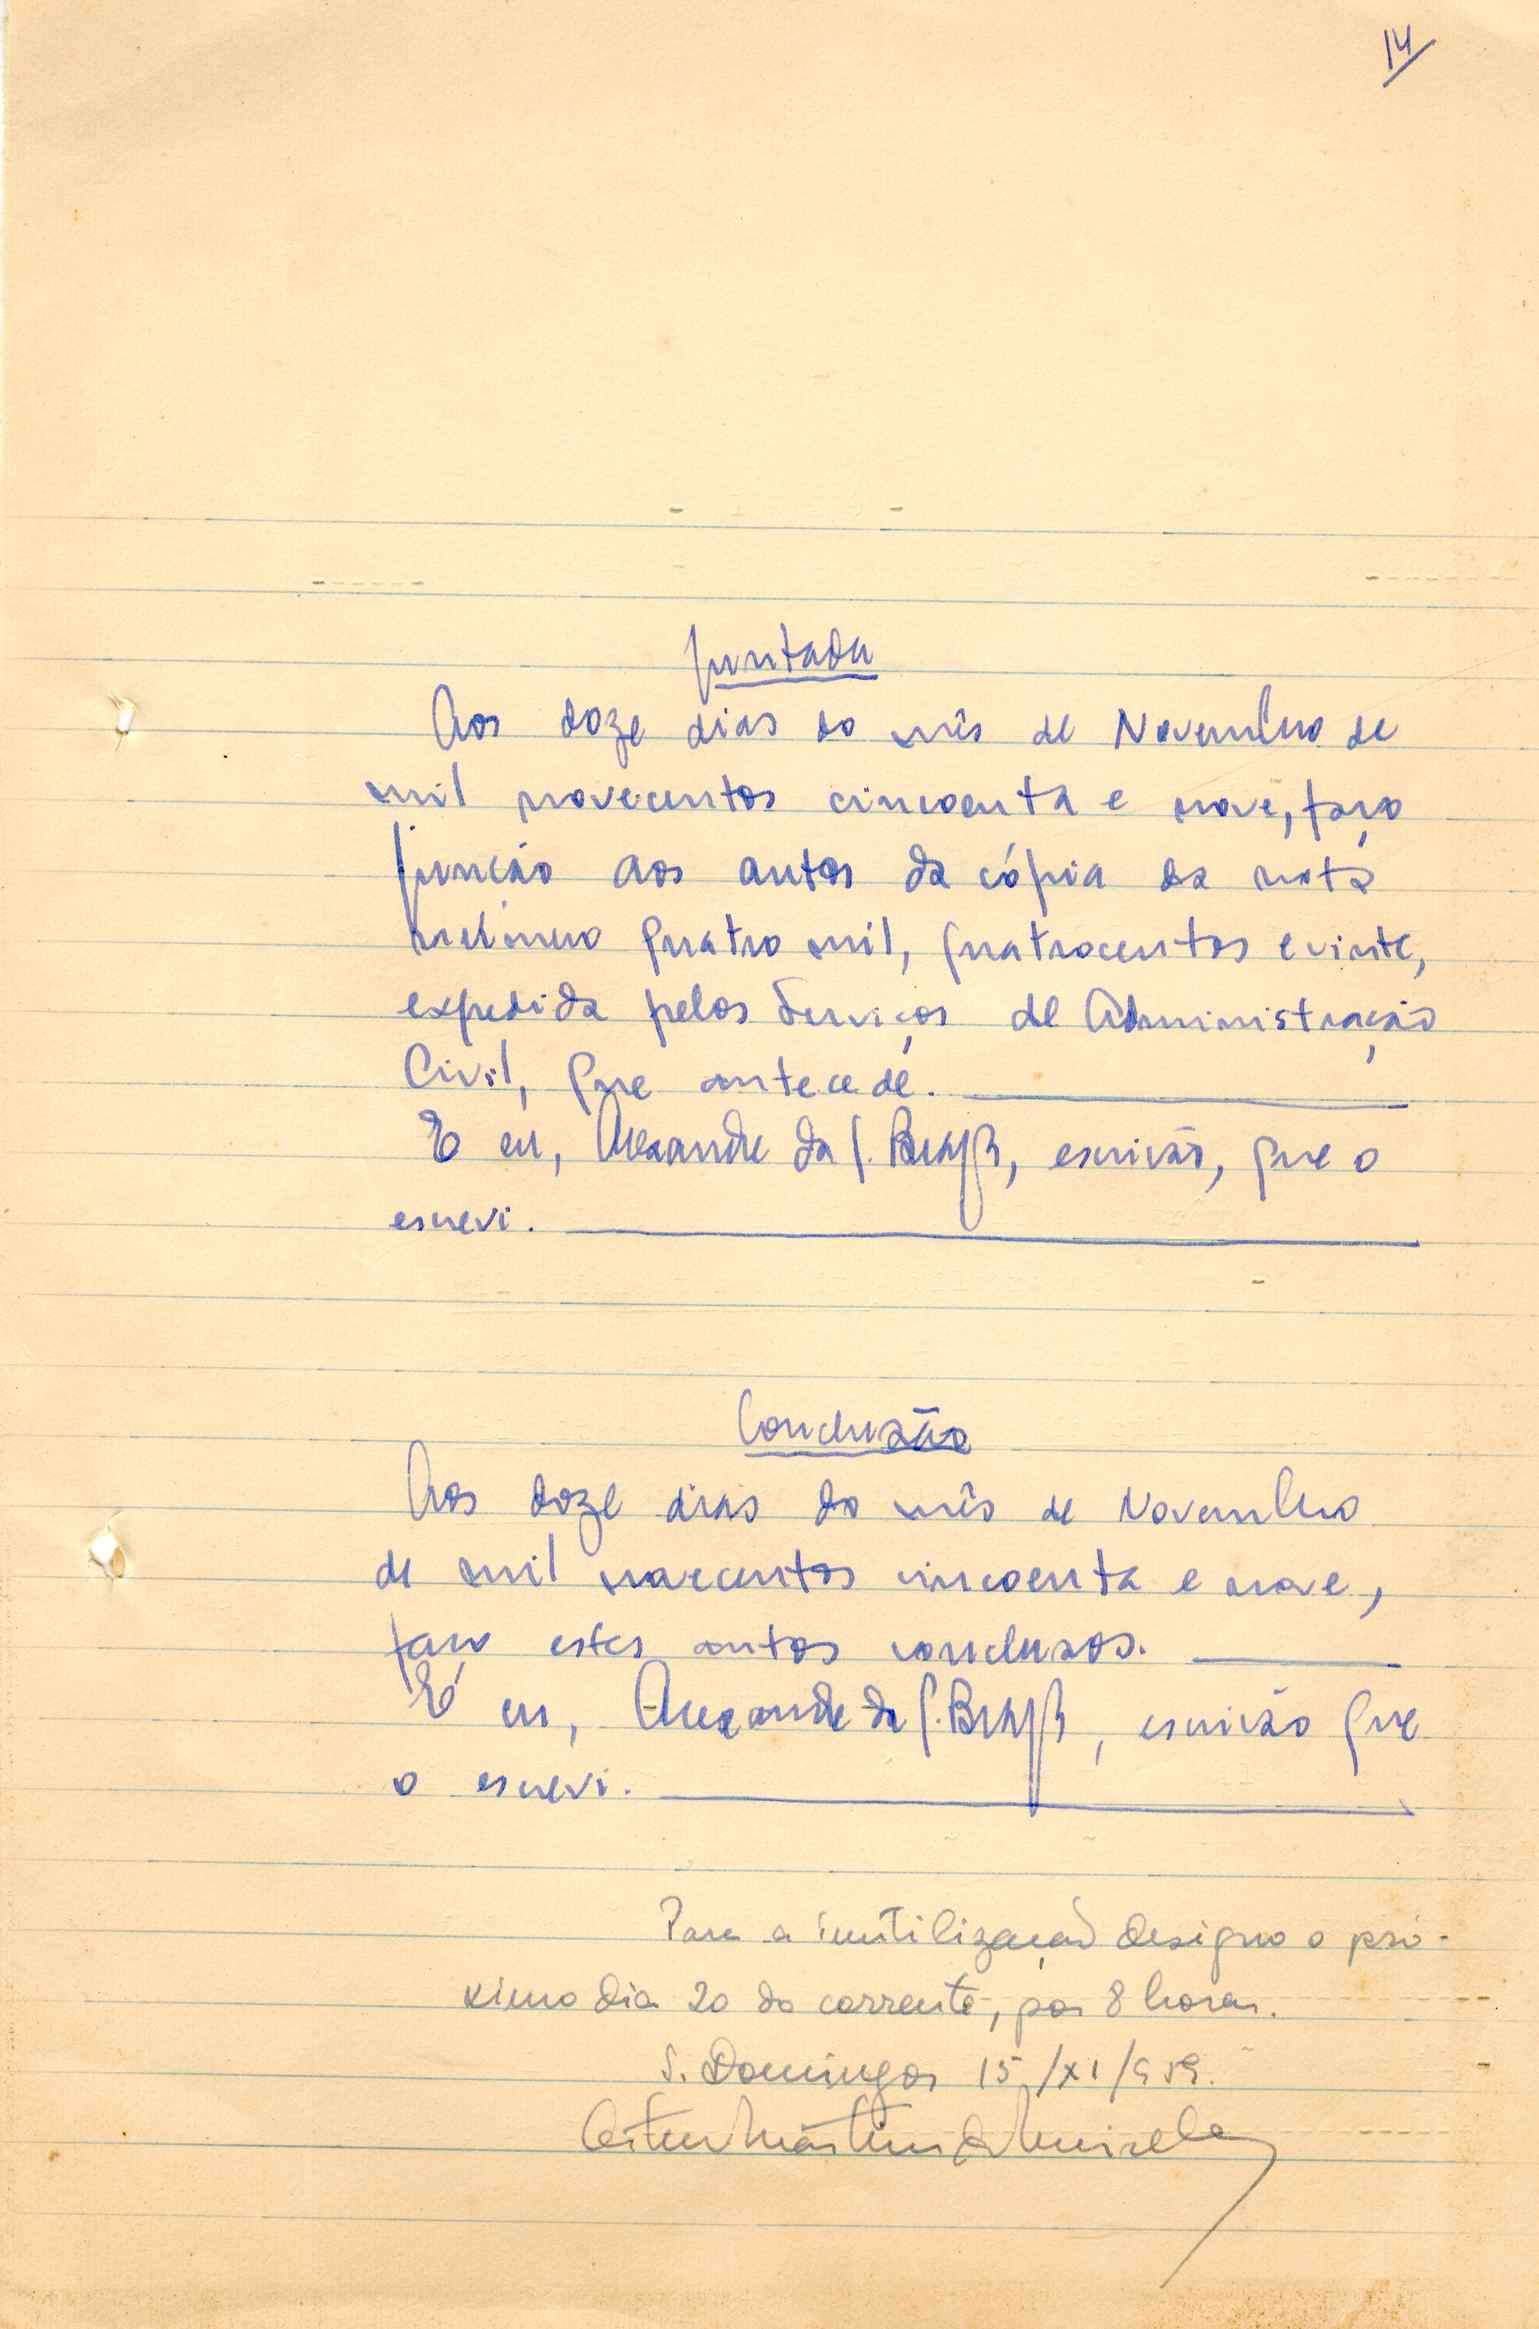 14
Juntada
Aos doze dias do mês de Novembro de
mil novecentos cincoenta e nove, faço
junção aos autos da cópia da nota
número quatro mil, quatrocentos e vinte,
expedida pelos Serviços de Administração
Civil, que antecede.
E eu, Alexandre da S. Braga, escrivão, que o
escrevi.
Conclusão
Aos doze dias do mês de Novembro
de mil novecentos cincoenta e nove,
faço estes autos conclusos.
E eu, Alexandre da S. Braga, escrivão que
o escrevi.
Para a inutilização designo o pró-
ximo dia 20 do corrente, por 8 horas.
S. Domingos 15/XI/959.
Martins